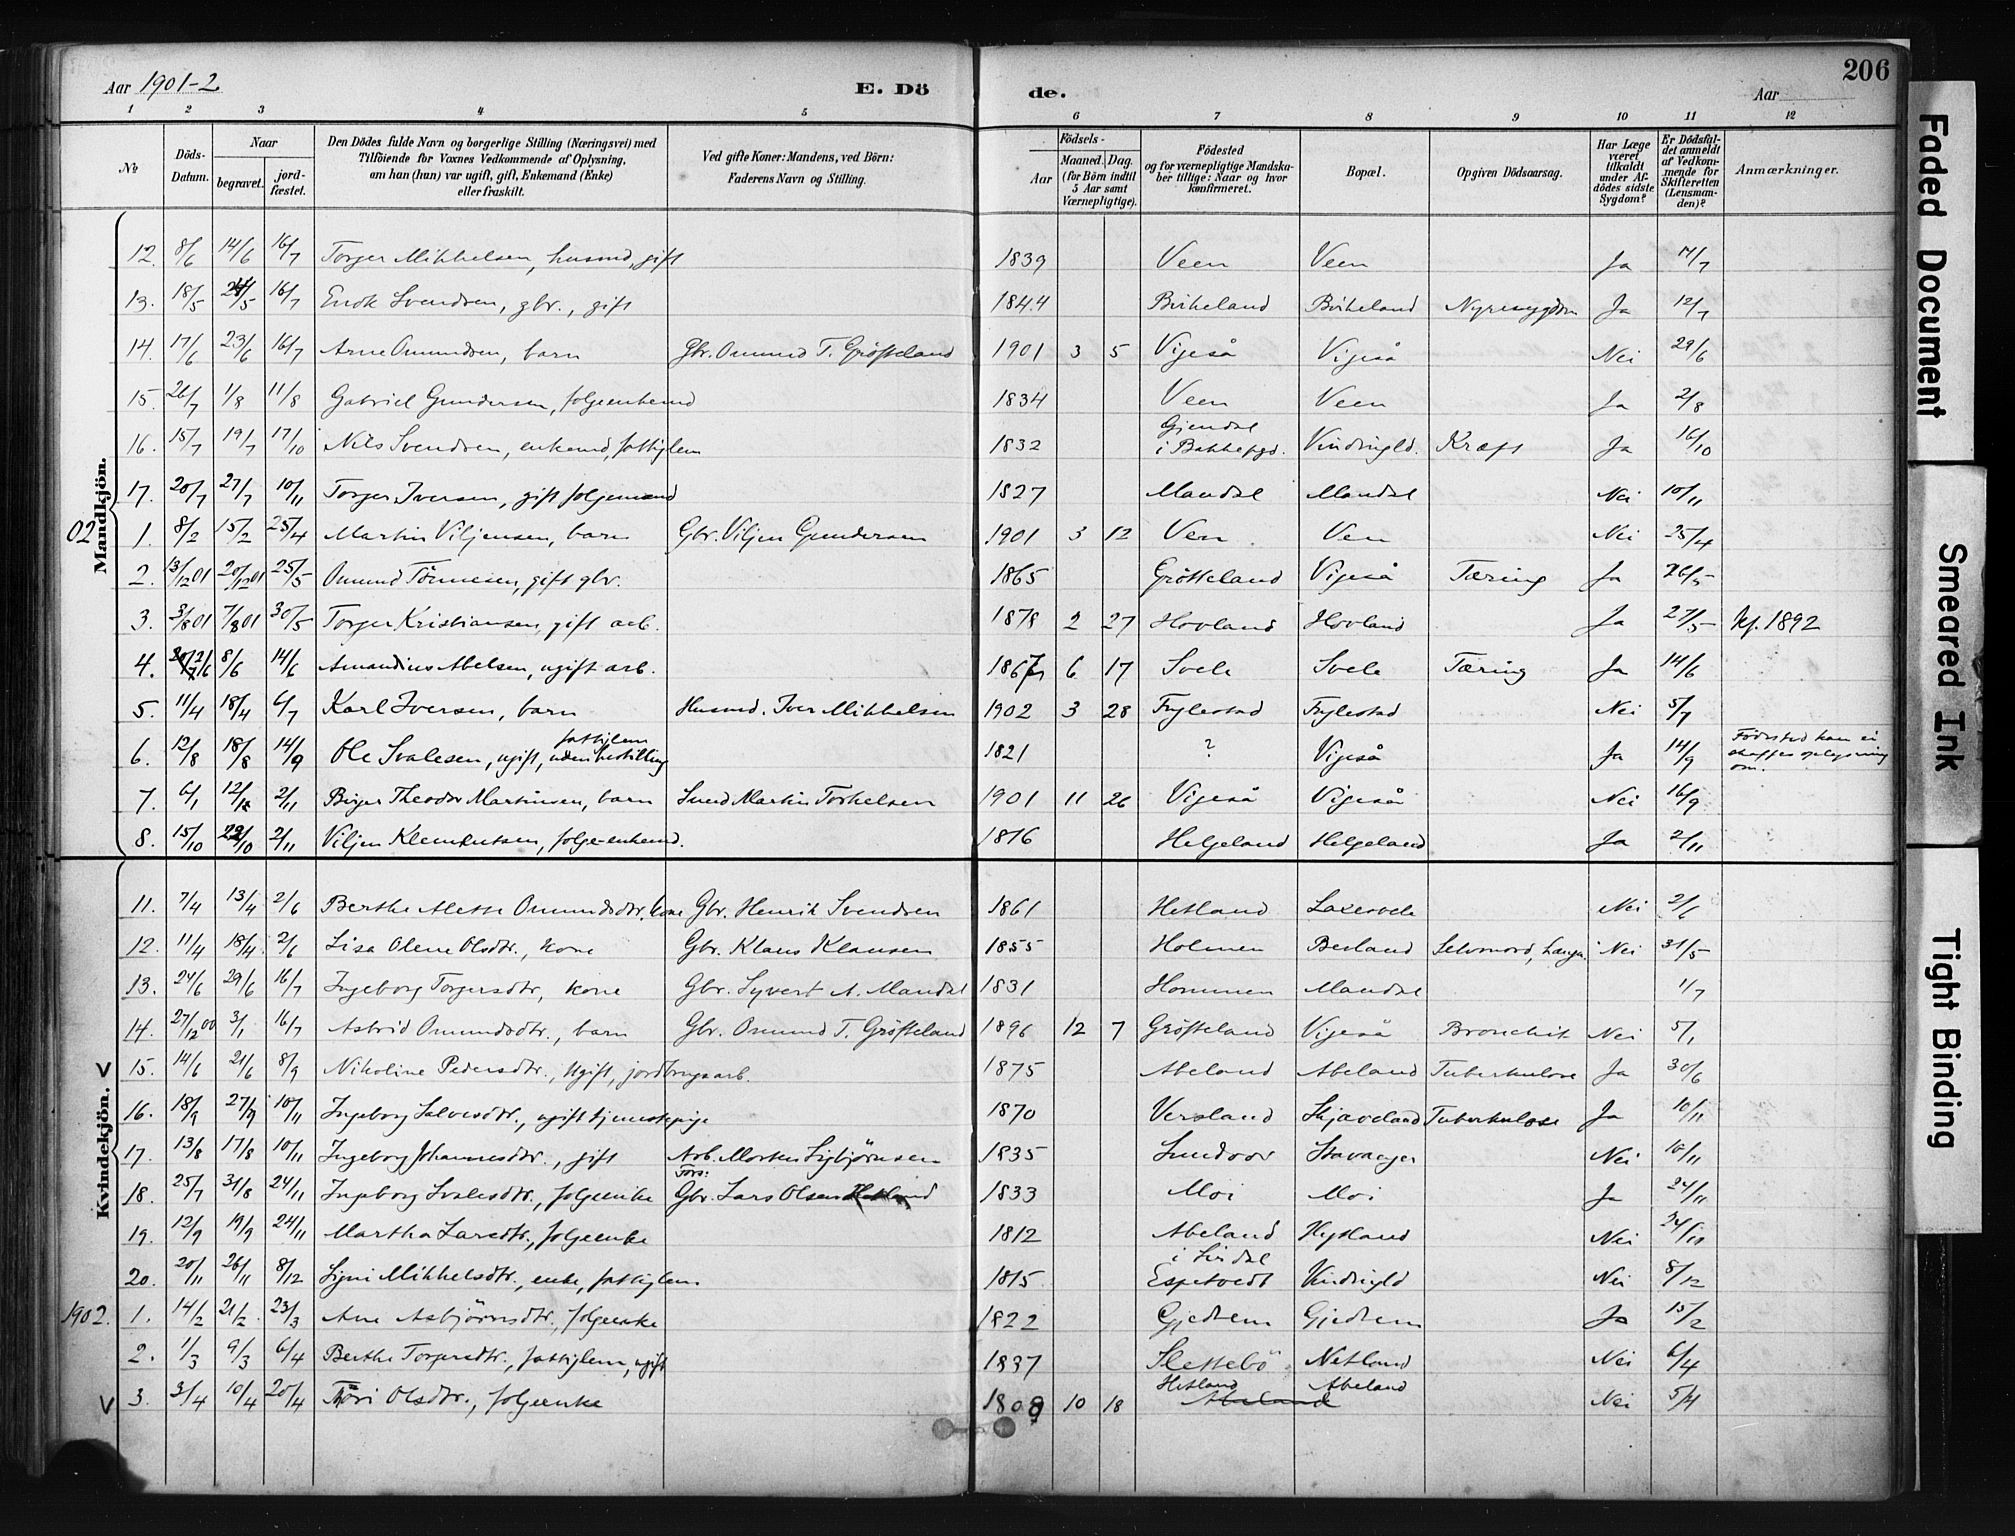 Aar 1901-2
E. Dö
de.
Aar
206
1 2 3 4 5 6 7 8 9 10 11 12
№
Döds-Datum.
Naar
begravet.
jord-fæstet.
Den Dödes fulde Navn og borgerlige Stilling (Næringsvei) med
Tilföiende for Voxnes Vedkommende af Oplysning,
om han (hun) var ugift, gift, Enkemand (Enke)
eller fraskilt.
Ved gifte Koner: Mandens, ved Börn:
Faderens Navn og Stilling.
Födsels-
Aar
Maaned. Dag.
(for Börn indtil
5 Aar samt
Værnepligtige).
Födested
og for værnepligtige Mandska-
ber tillige: Naar og hvor
konfirmeret.
Bopæl.
Opgiven Dödsaarsag.
Har Læge
været
tilkaldt
under Af-
dödes sidste
Sygdom?
Er Dödsfal-
det anmeldt
af Vedkom-
mende for
Skifteretten
(Lensman-
den)?
Anmærkninger.
Mandkjön.
12. 8/6 14/6 16/7 Torger Mikkelsen, husmd, gift 1839 Veen Veen Ja 17/7
13. 18/5 24/5 16/7 Enok Svendsen, gbr., gift 1844 Birkeland Birkeland Nyresygdom Ja 12/7
14. 17/6 23/6 16/7 Arne Omundsen, barn Gbr. Omund T. Gröfteland 1901 3 5 Vigeså Vigeså Nei 29/6
15. 26/7 1/8 11/8 Gabriel Gundersen, folgeenkemd 1834 Veen Veen Ja 2/8
16. 15/7 19/7 17/10 Nils Svendsen, enkemd, fattiglem 1832 Gjendal i Bakkepgd. Vindringld. Kræft Ja 16/10
17. 20/7 27/7 10/11 Torger Iversen, gift folgemand 1827 Mandal Mandal Nei 10/11
02 1. 8/2 15/2 25/4 Martin Viljensen, barn Gbr. Viljen Gundersen 1901 3 12 Veen Veen Nei 25/4
2. 13/12 01 20/12 01 25/5 Omund Tönnesen, gift gbr. 1865 Grötteland Vigeså Tæring Ja 26/5
3. 3/8 01 7/8 01 30/5 Torger Kristiansen, gift arb. 1878 2 27 Hovland Hovland Ja 27/5 Kf. 1892
4. 2/6 8/6 14/6 Amandius Abelsen, ugift arb. 1867 6 17 Svela Svela Tæring Ja 14/6
5. 11/4 18/4 6/7 Karl Iversen, barn Husmd. Iver Mikkelsen 1902 3 28 Fuglestad Fuglestad Nei 5/7
6. 12/8 18/8 14/9 Ole Svalesen, ugift, uden bestilling fattiglem 1821 ? Vigeså Ja 14/9 Födested kan ei skaffes oplysning om.
7. 6/1 12/1 2/11 Birger Theodor Martinsen, barn Smed Martin Torkelsen 1901 11 26 Vigeså Vigeså Nei 16/9
8. 15/10 22/10 2/11 Viljen Klemhetsen, folge-enkemd. 1816 Helgeland Helgeland Ja 2/11
Kvindekjön.
11. 7/4 13/4 2/6 Berthe Alette Omundsdtr. kone Gbr. Henrik Svendsen 1861 Hetland Laxesvela Nei 2/6
12. 11/4 18/4 2/6 Lisa Olene Olsdtr., kone Gbr. Klaus Klausen 1855 Holmen Besland Selvmord, hængn. Nei 31/5
13. 24/6 29/6 16/7 Ingeborg Torgersdtr., kone Gbr. Syvert A. Mandal 1831 Hommen Mandal 1/7
14. 27/12 00 3/1 16/7 Astrid Omundsdtr., barn Gbr. Omund T. Gröfteland 1896 12 7 Gröfteland Vigeså Bronchit Nei 5/1
V 15. 14/6 21/6 8/9 Nikoline Pedersdtr., ugift, jordbrugsarb. 1875 Abeland Abeland Tuberkulose Ja 30/6
16. 18/9 27/9 10/11 Ingeborg Salvesdtr., ugift tjenestepige 1870 Versland Skjæveland Tuberkulose Ja 10/11
17. 13/8 17/8 10/11 Ingeborg Johannesdtr., gift Arb. Morten Sigbjörnsen 1835 Sundvor Stavanger Nei 10/11
18. 25/7 31/8 24/11 Ingeborg Svalesdtr., folgeenke Fors: Gbr. Lars Olsen Hetland 1833 Moi Moi Ja 24/11
19. 12/9 19/9 24/11 Martha Larsdtr., folgeenke 1812 Abeland i Sirdal Hytland Nei 24/11
20. 20/11 26/11 8/12 Signi Mikkelsdtr., enke, fattiglem 1815 Espetvedt Vindringld Nei 8/12
1902. 1. 14/2 21/2 23/3 Ane Asbjörnsdtr., folgeenke 1822 Gjedrem Gjedrem Ja 15/2
2. 1/3 9/3 6/4 Berthe Torgersdtr., fattiglem, ugift 1837 Slettebö Netland Nei 6/4
V 3. 3/4 10/4 20/4 Töri Olsdtr., folgeenke 1809 10 18 Hetland Abeland Abeland Nei 5/4
Faded Document
Smeared Ink
Tight Binding